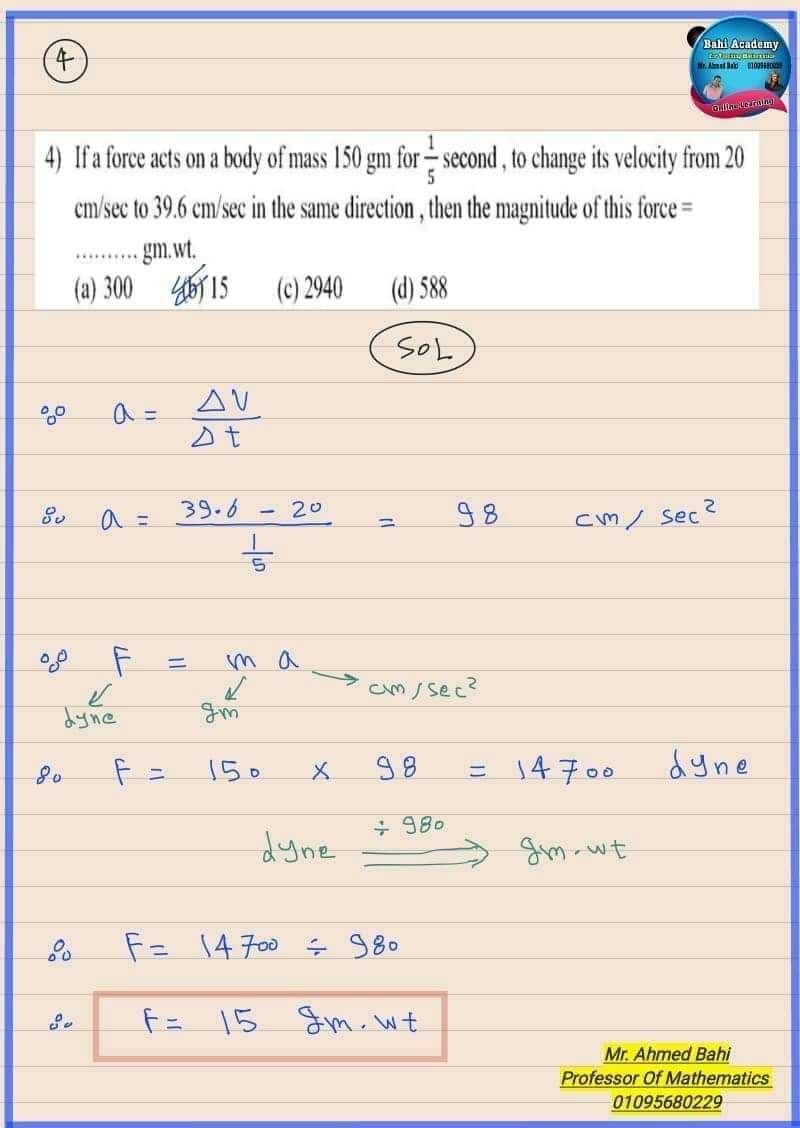 4
Bahi Academy
For Teaching Mathematics
Mr. Ahmed Bahi 01095680229
Online Learning
4) If a force acts on a body of mass 150 gm for 1/5 second , to change its velocity from 20
cm/sec to 39.6 cm/sec in the same direction , then the magnitude of this force =
.......... gm.wt.
(a) 300 (b) 15 (c) 2940 (d) 588
SOL
∵ a = ΔV / Δt
∴ a = (39.6 - 20) / (1/5) = 98 cm / sec²
∵ F = m a
cm / sec²
dyne gm
∴ F = 150 × 98 = 14700 dyne
÷ 980
dyne ⟹ gm.wt
∴ F = 14700 ÷ 980
∴ F = 15 gm.wt
Mr. Ahmed Bahi
Professor Of Mathematics
01095680229